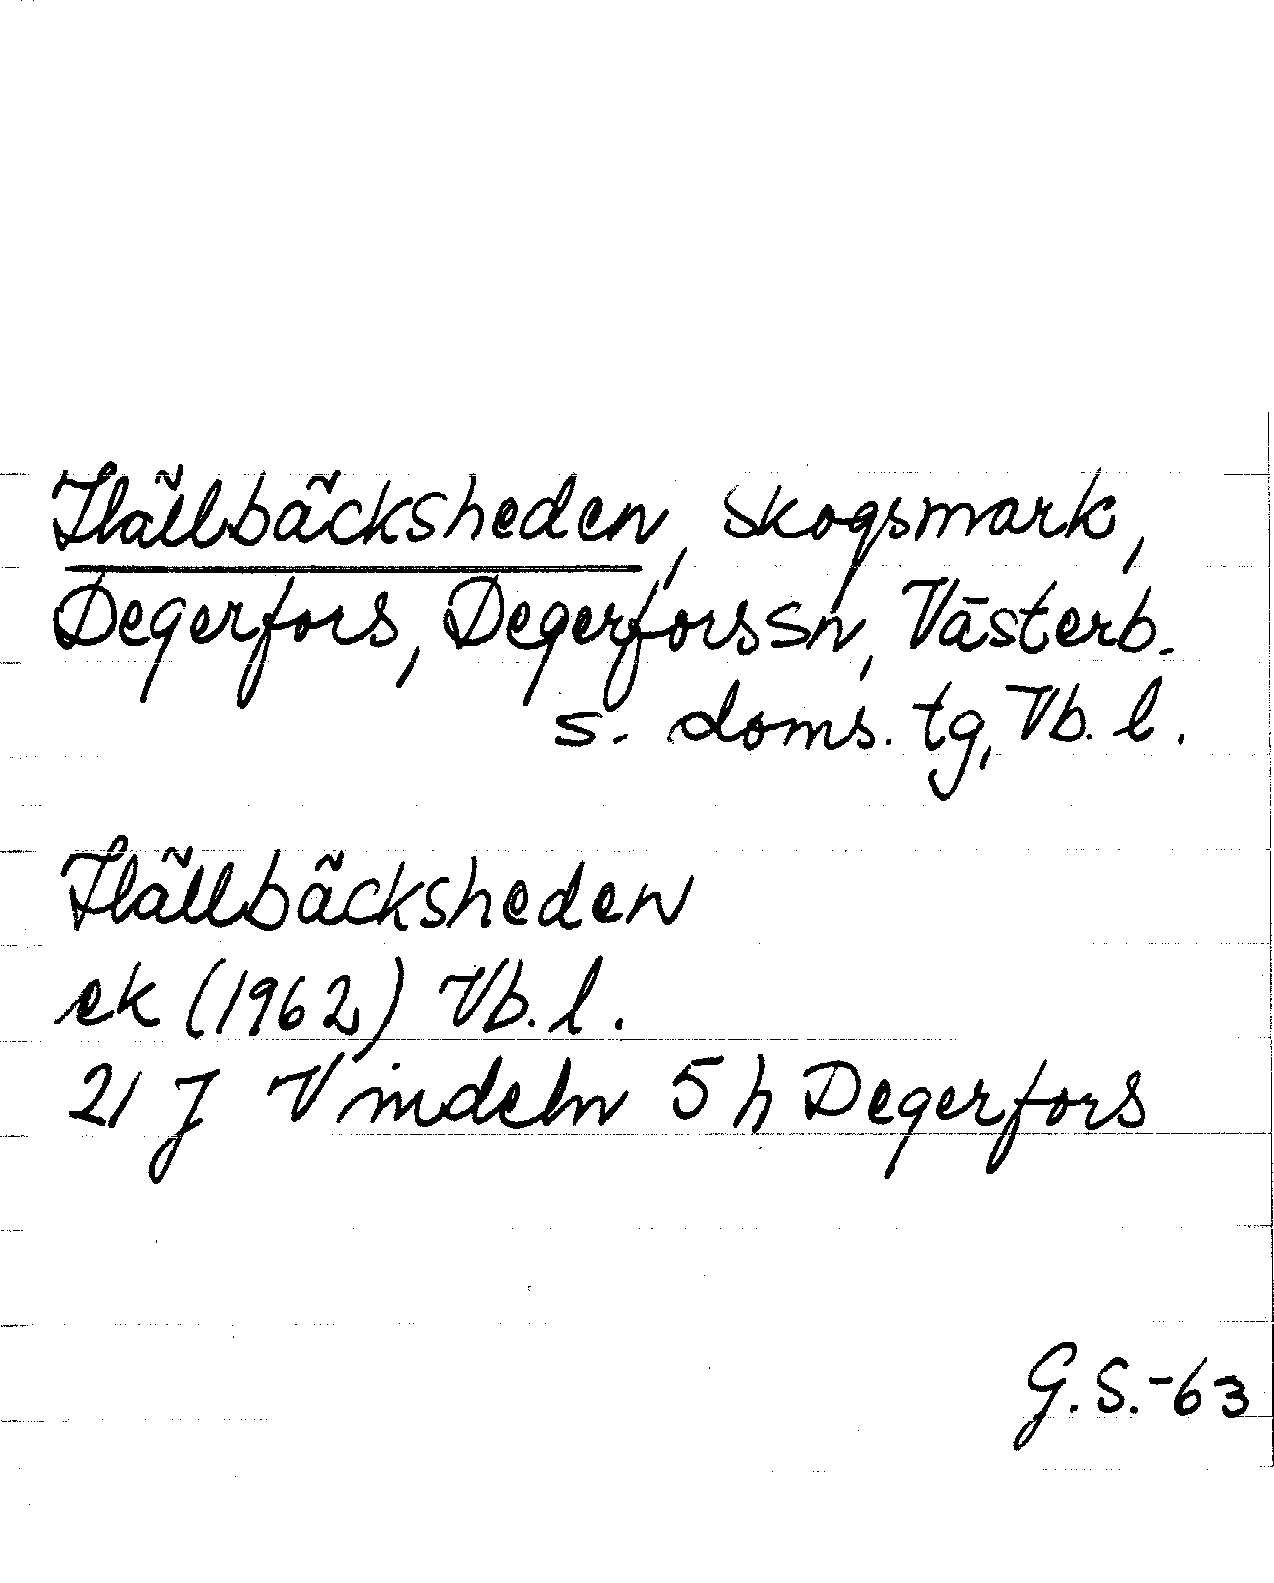 Hällbäcksheden, skogsmark,
Degerfors, Degerfors sn, Västerb.
s. doms. tg, Vb. l.
Hällbäcksheden
ek (1962) Vb. l.
21 J Vindeln 5 h Degerfors
G.S.-63